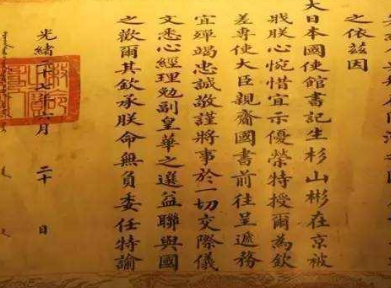 之依茲因
大日本國使館書記生杉山彬在京被
戕朕心惋惜宜示優榮特授爾為欽
差專使大臣親齎國書前往呈遞務
宜殫竭忠誠敬謹將事於一切交際儀
文悉心經理勉副皇華之選益聯與國
之歡爾其欽承朕命無負委任特諭
光緒二十七年 月二十日